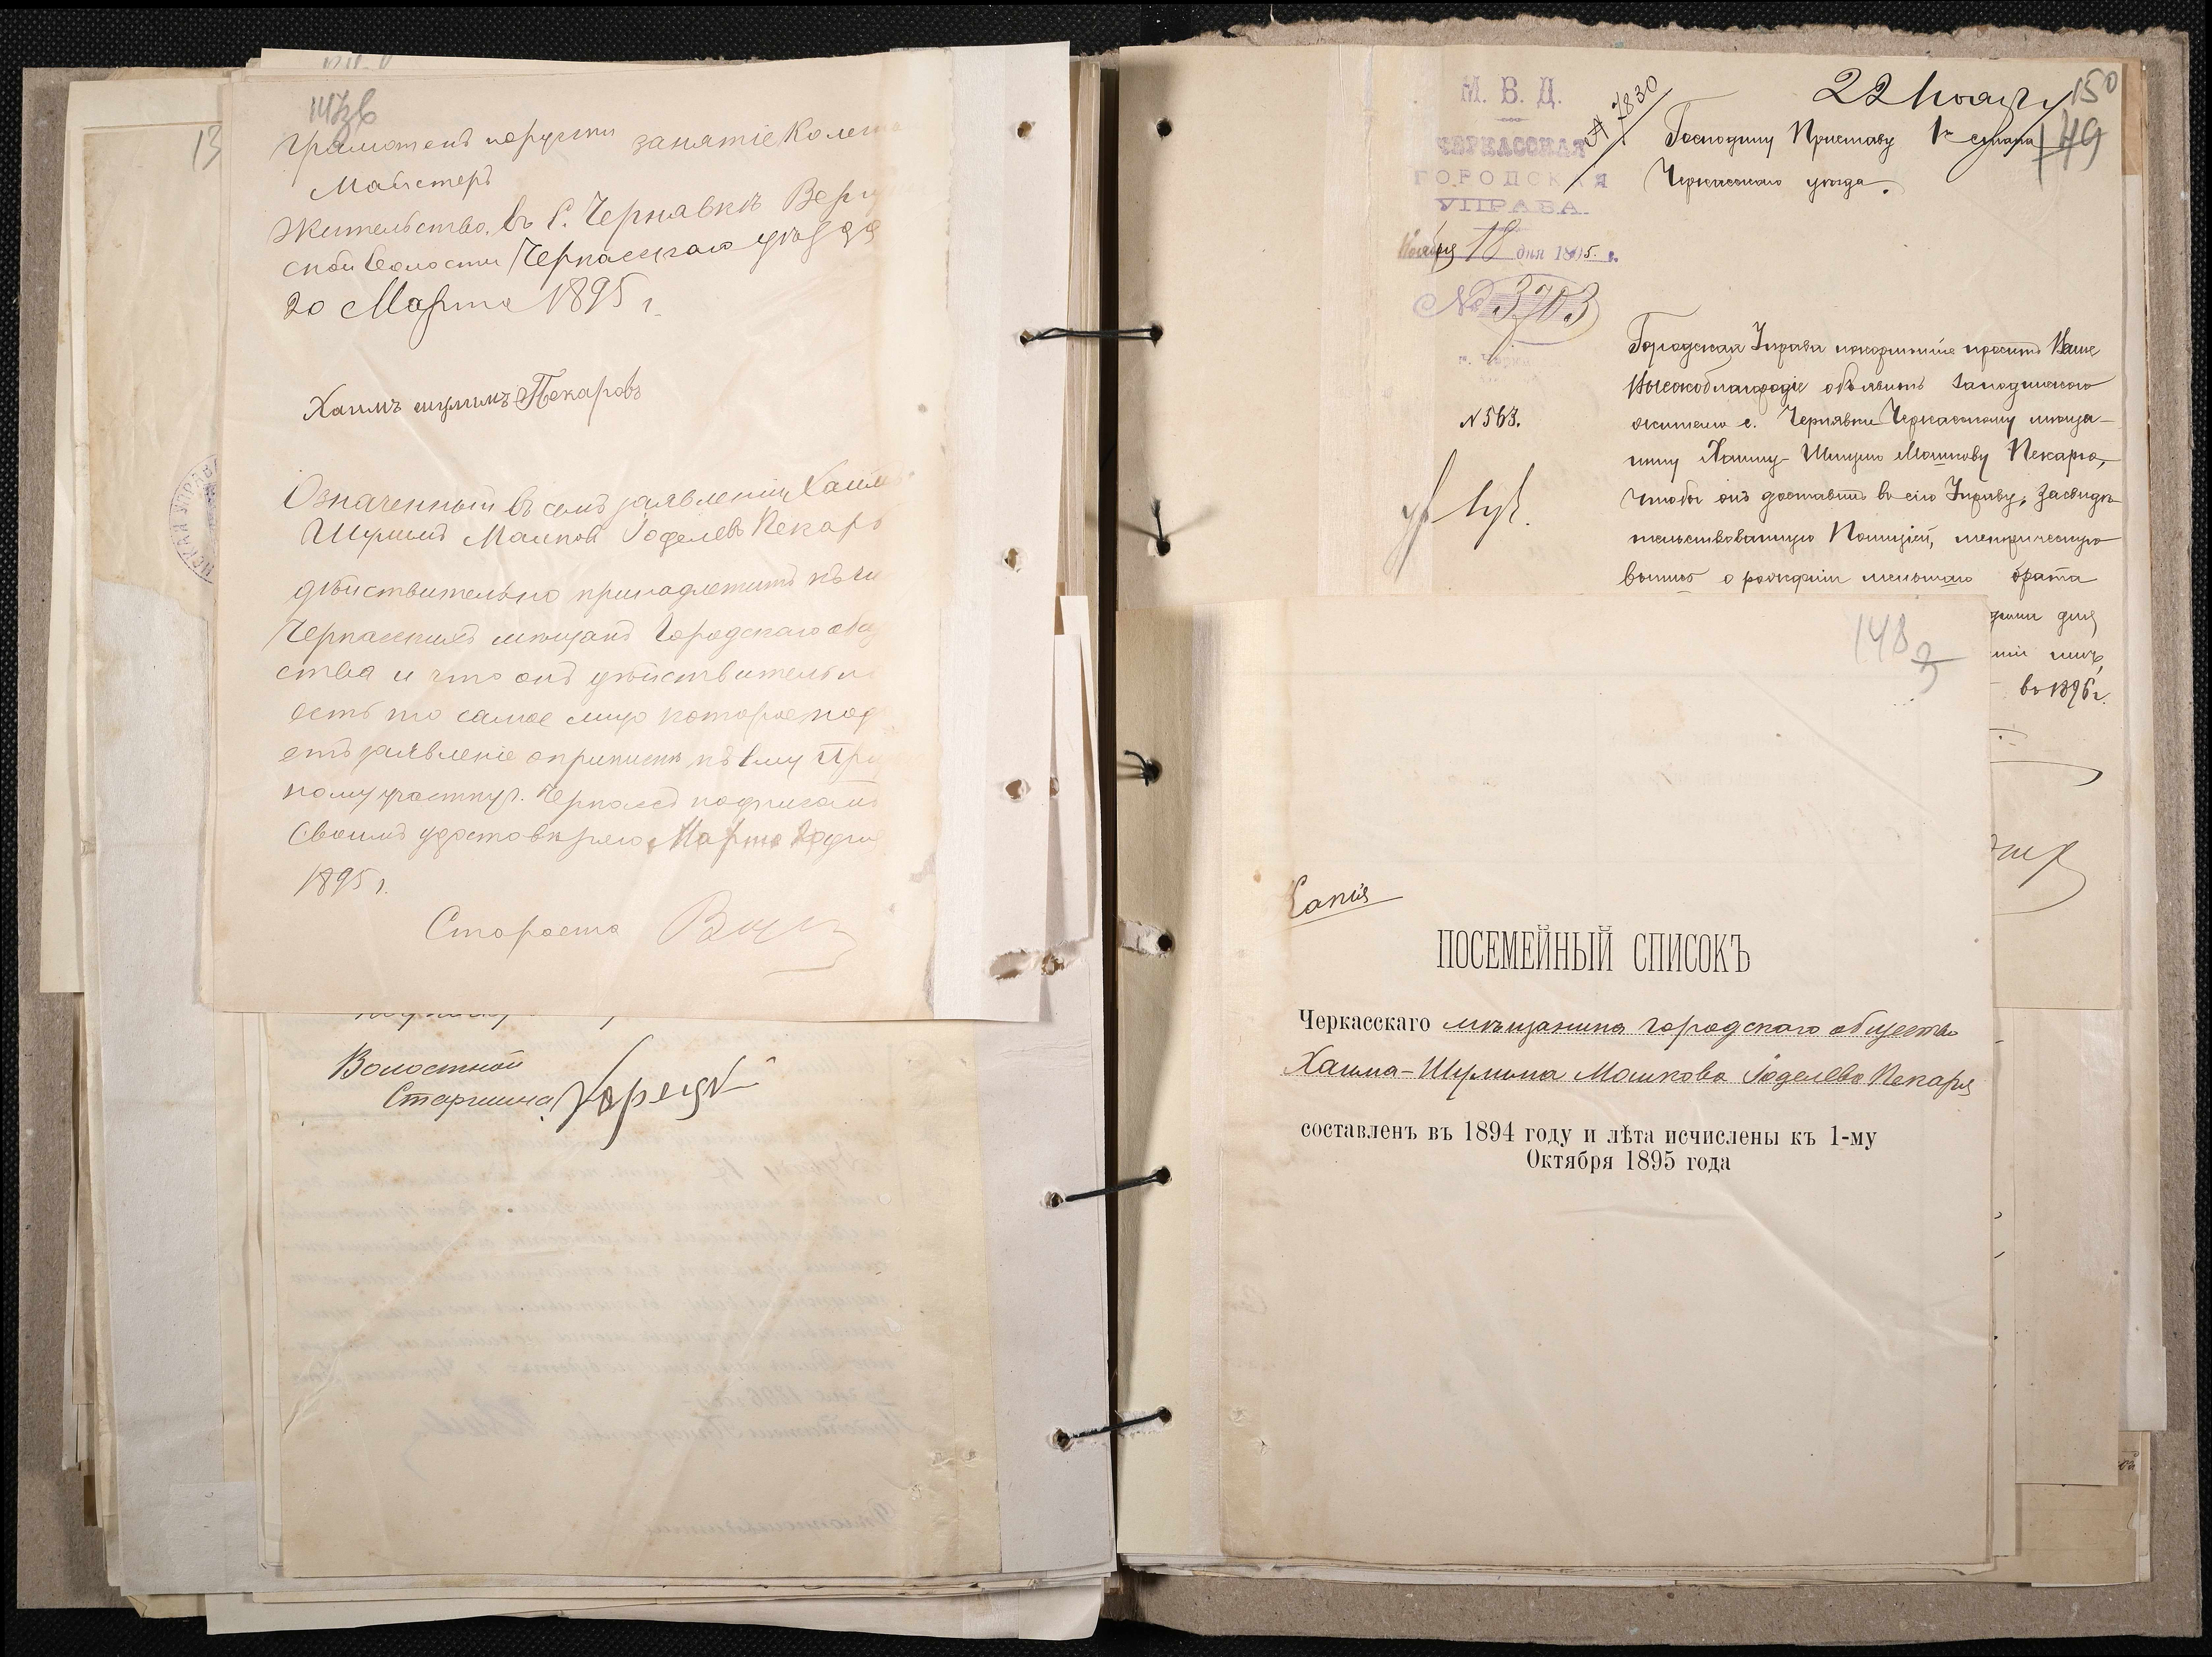 грамотенъ порусски занятіе Колесн
Майстеръ
жительство въ с. Чернявкѣ Верг
ской волости Черкасскаго уѣзда
20 Марта 1895 г.
Хаимъ шулимъ Пекаровъ
Означенный въ семъ заявленіи Хаимъ
Шулимъ Машков Іоделевъ Пекарь
дѣйствительно принадлежитъ къ чи
Черкасскихъ мѣщанъ Городскаго общ
ства и что онъ дѣйствительно
есть то самое лицо которое под
етъ заявленіе о припискѣ къ 1му При
ному участку г. Черкассъ подписомъ
Своимъ удостовѣряю Марта 20 дня
1895 г.
Староста
Волостной
Старшина
13
СКАЯ УПРАВА
М. В. Д.
ЧЕРКАССКАЯ
ГОРОДСКАЯ
УПРАВА.
Ноября 18 дня 1895. г.
№ 3703
г. Черка
№ 563.
№ 7830
22 Ноября
150
149
Господину Приставу 1го стана
Черкасскаго уѣзда.
Городская Управа покорнѣйше проситъ Ваше
Высокоблагородіе объявить
жителю с. Чернявки Черкасскому мѣща-
нину Хаиму-Шулиму Мошкову Пекарю,
чтобы онъ доставилъ въ сію Управу, засвидѣ-
тельствованную Полиціей, метрическую
выпись о рожденіи меньшаго брата
дня
въ 1896 г.
148
Копія
ПОСЕМЕЙНЫЙ СПИСОКЪ
Черкасскаго мѣщанина городского общества
Хаима-Шулима Мошкова Іоделева Пекаря
составленъ въ 1894 году и лѣта исчислены къ 1-му
Октября 1895 года